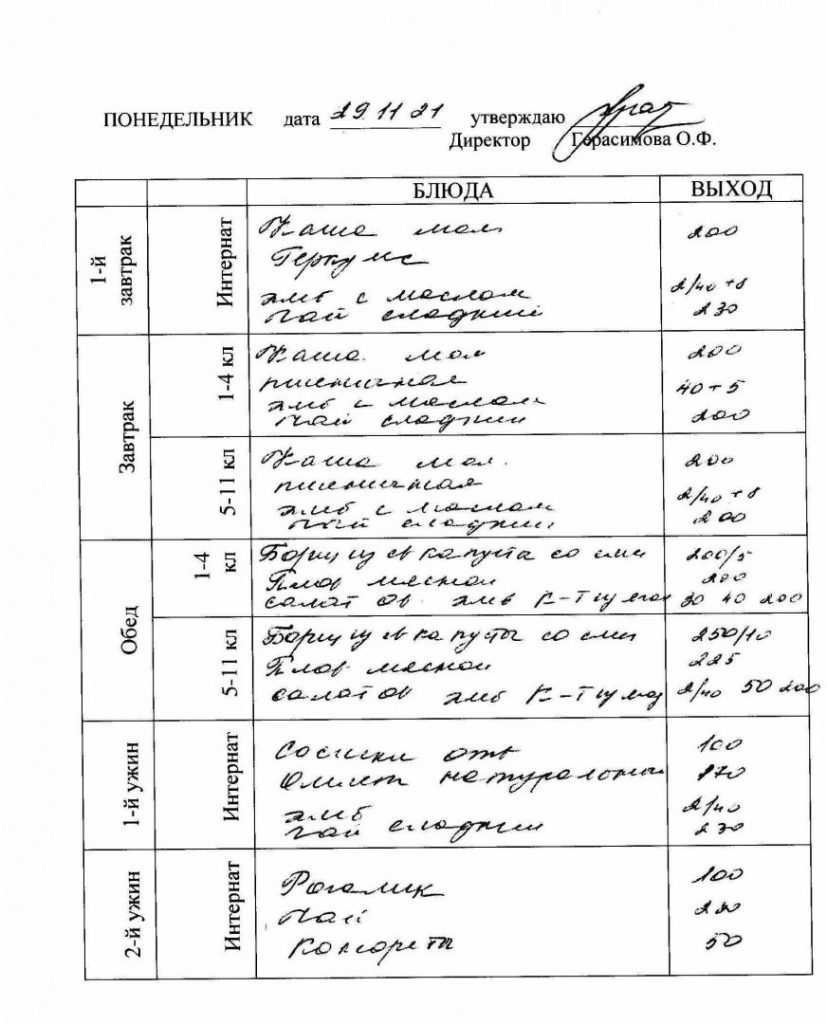 ПОНЕДЕЛЬНИК дата 29.11 21 утверждаю
Директор Герасимова О.Ф.
БЛЮДА ВЫХОД
1-й завтрак Интернат
Каша мол 200
Геркулес
хлеб с маслом 2/40 +8
чай сладкий 230
Завтрак
1-4 кл
Каша мол 200
пшеничная
хлеб с маслом 40+5
чай сладкий 200
5-11 кл
Каша мол. 200
пшеничная
хлеб с маслом 2/40 +8
чай сладкий 200
Обед
1-4 кл
Борщ из св капусты со см 200/5
Плов мясной 200
салат ов. хлеб К-т 30 40 200
5-11 кл
Борщ из св капусты со см 250/10
Плов мясной 225
салат ов хлеб К-т 2/40 50 200
1-й ужин Интернат
Сосиски отв 100
Омлет натуральный 170
хлеб 2/40
чай сладкий 230
2-й ужин Интернат
Рогалик 100
Чай 200
Конфеты 50